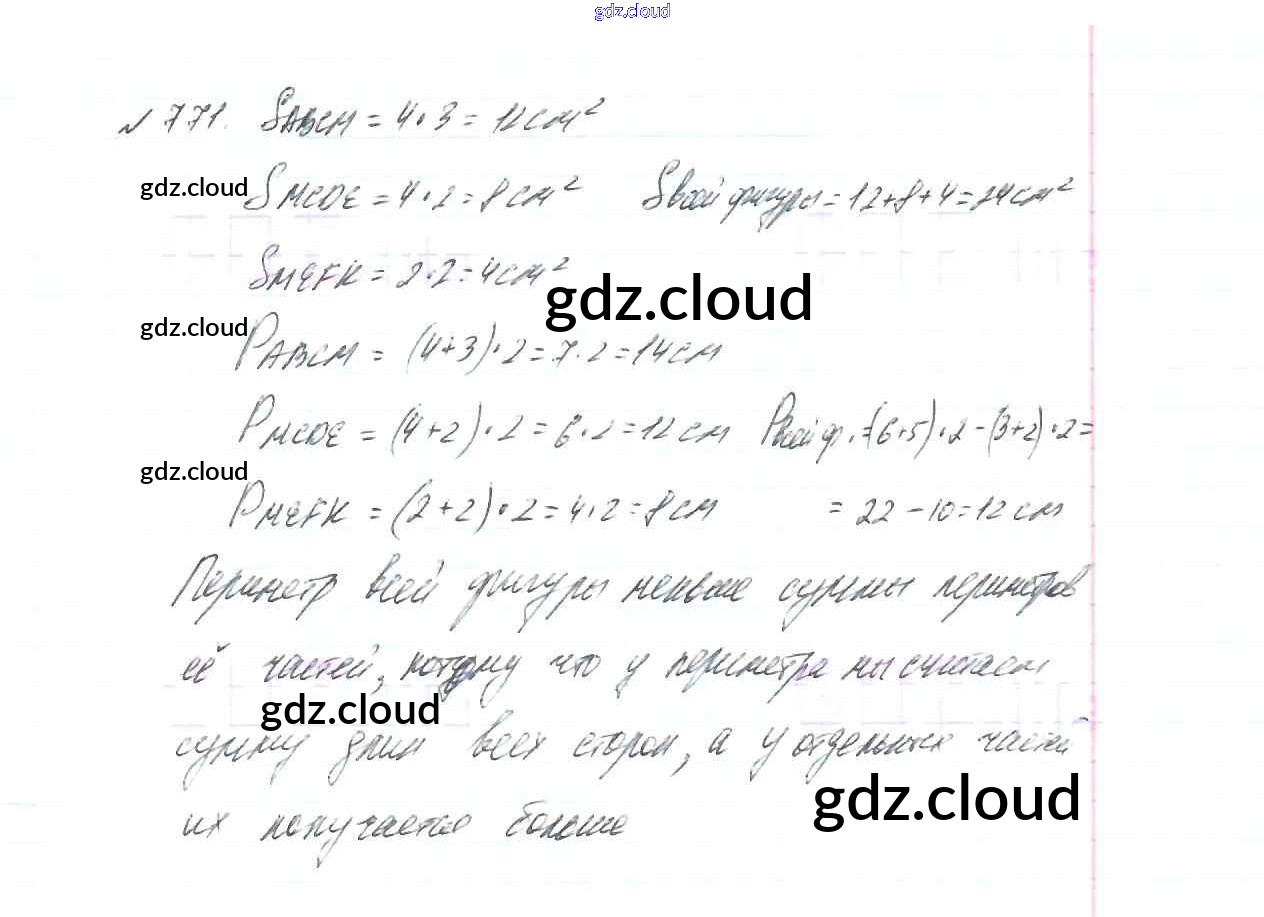 gdz.cloud
№ 771. SABCM = 4·3 = 12 см²
gdz.cloud SMCDE = 4·2 = 8 см² Sвсей фигуры = 12+8+4 = 24 см²
SMEFK = 2·2 = 4 см²
gdz.cloud
gdz.cloud PABCM = (4+3)·2 = 7·2 = 14 см
PMCDE = (4+2)·2 = 6·2 = 12 см Pвсей ф. = (6+5)·2 - (3+2)·2 =
gdz.cloud
PMEFK = (2+2)·2 = 4·2 = 8 см = 22 - 10 = 12 см
Периметр всей фигуры меньше суммы периметров
её частей, потому что у периметра мы считаем
gdz.cloud
сумму длин всех сторон, а у отдельных частей
gdz.cloud
их получается больше